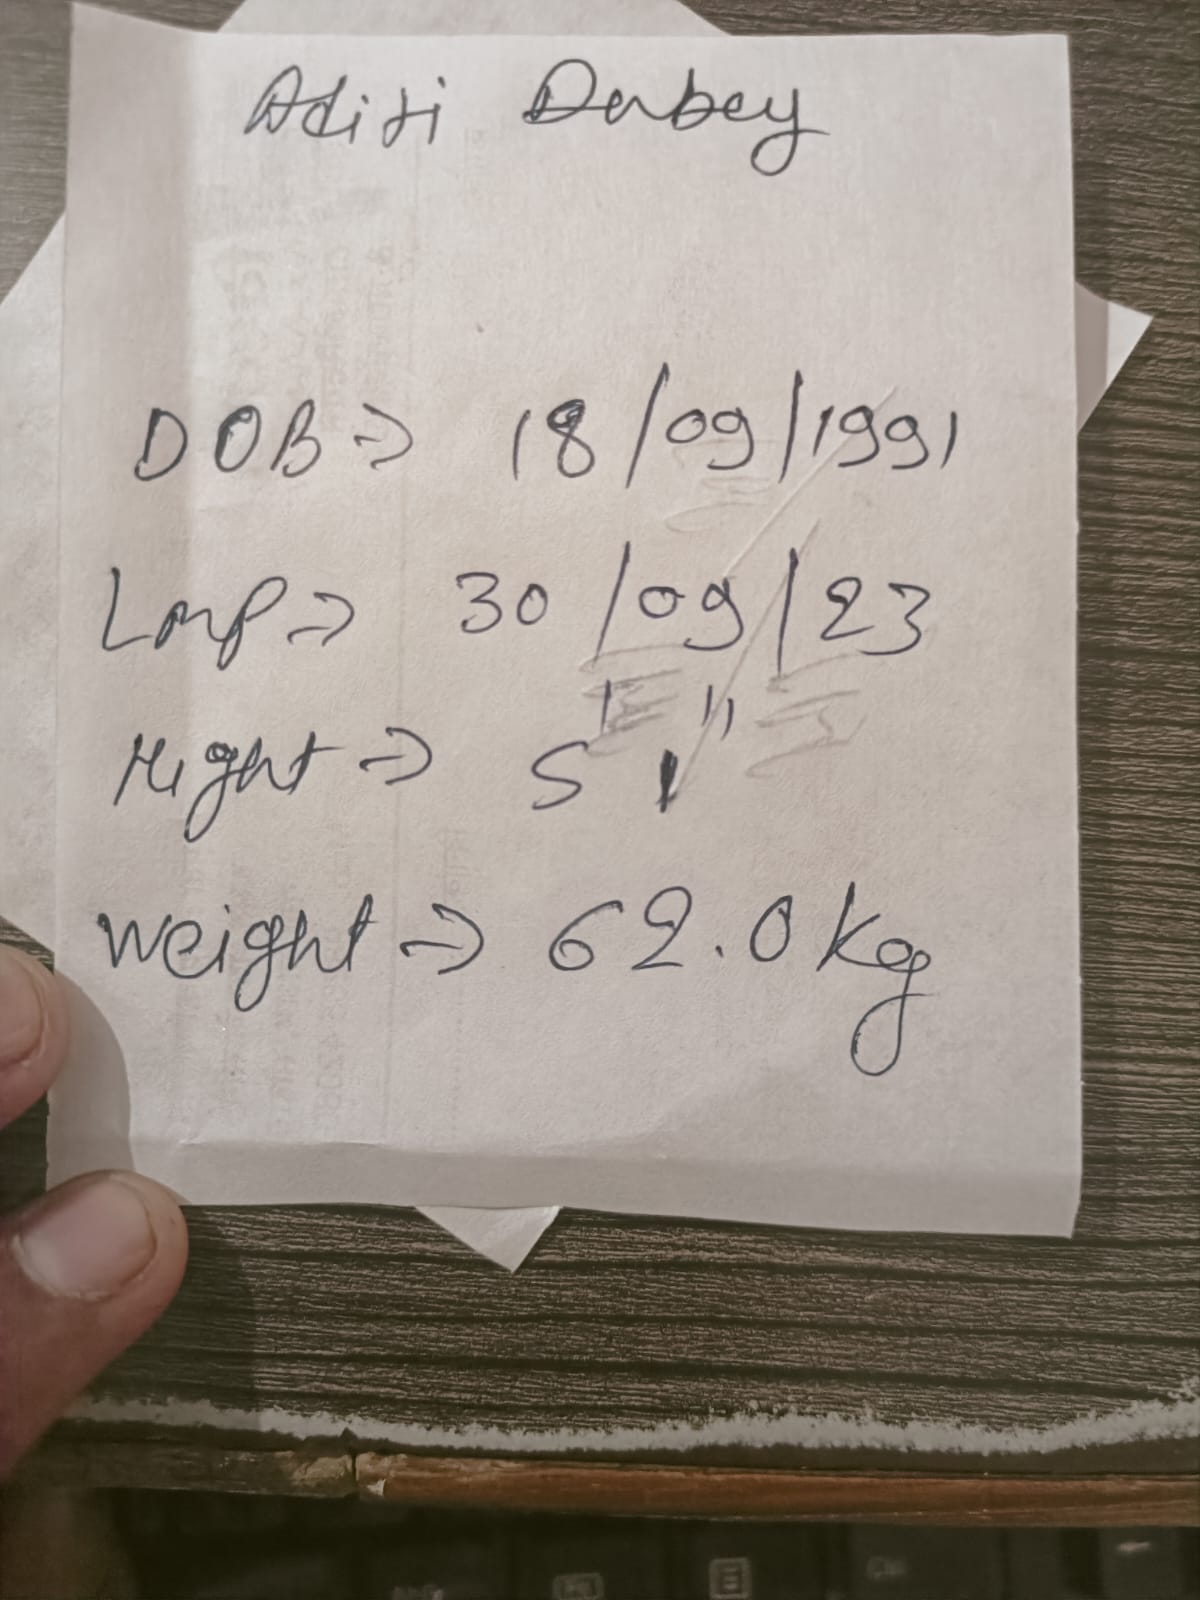 Aditi Dubey
DOB => 18/09/1991
LMP => 30/09/23
Hight => 5' 1"
Weight => 62.0 kg